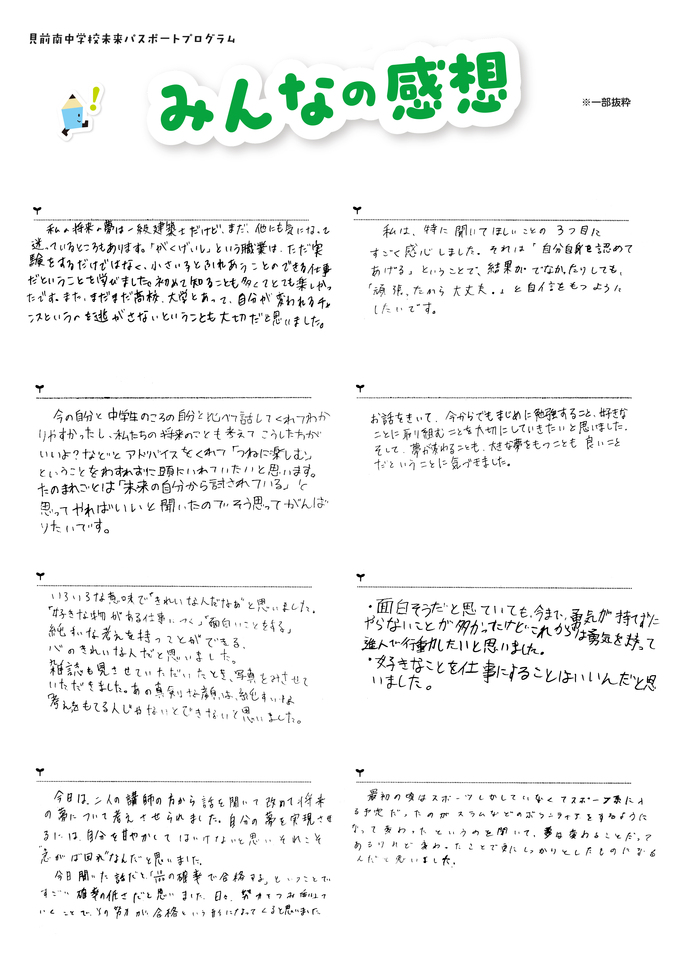 見前南中学校未来パスポートプログラム
みんなの感想
※一部抜粋
私の将来の夢は一級建築士だけど、まだ、他にも気になって
迷っているところもあります。「がくげいし」という職業は、ただ実
験をするだけではなく、小さい子とふれあうことのできる仕事
だということを学びました。初めて知ることも多くてとても楽しかっ
たです。また、まだまだ高校、大学とあって、自分が変われるチャ
ンスというのを逃がさないということも大切だと思いました。
私は、特に聞いてほしいことの3つ目に
すごく感心しました。それは「自分自身を認めて
あげる」ということで、結果がでなかったりしても、
「頑張ったから大丈夫。」と自信をもつように
したいです。
今の自分と中学生のころの自分と比べて話してくれてわか
りやすかったし、私たちの将来のことも考えてこうした方が
いいよ?などとアドバイスをくれて「つねに楽しむ」
ということをわすれずに頭にいれていたいと思います。
たのまれごとは「未来の自分から試されている」と
思ってやればいいと聞いたのでそう思ってがんば
りたいです。
お話をきいて、今からでもまじめに勉強すること、好きな
ことに取り組むことを大切にしていきたいと思いました。
そして、夢が変わることも、大きな夢をもつことも良いこと
だということに気づきました。
いろいろな意味で"きれいな人だなぁ"と思いました。
「好きな物がある仕事につく」「面白いことをする」
純粋な考えを持ってことができる、
心のきれいな人だと思いました。
雑誌も見させていただいたとき、写真をみさせて
いただきました。あの真剣な顔は、純すいな
考えをもてる人じゃないとできないと思いました。
・面白そうだと思ていても、今まで、勇気が持てずに
やらないことが多かったけどこれからは勇気を持って
進んで行動したいと思いました。
・好きなことを仕事にすることはいいんだと思
いました。
今日は、二人の講師の方から話を聞いて改めて将来
の夢について考えさせられました。自分の夢を実現させ
るには、自分を甘やかしてはいけないと思いそれこそ
"急がば回れ"なんだと思いました。
今日聞いた話だと「の確率で合格する」ということで
すごい確率の低さだと思いました。日々、努力をつみ重ねて
いくことで、その努力が合格という形になってくると思いました。
最初の頃はスポーツしかしていなくてスポーツ系に入
る予定だったのがスラムなどのボランティアをするように
なって変わったというのを聞いて、夢は変わることだって
あるけれど変わったことで更にしっかりとしたものになる
んだと思いました。